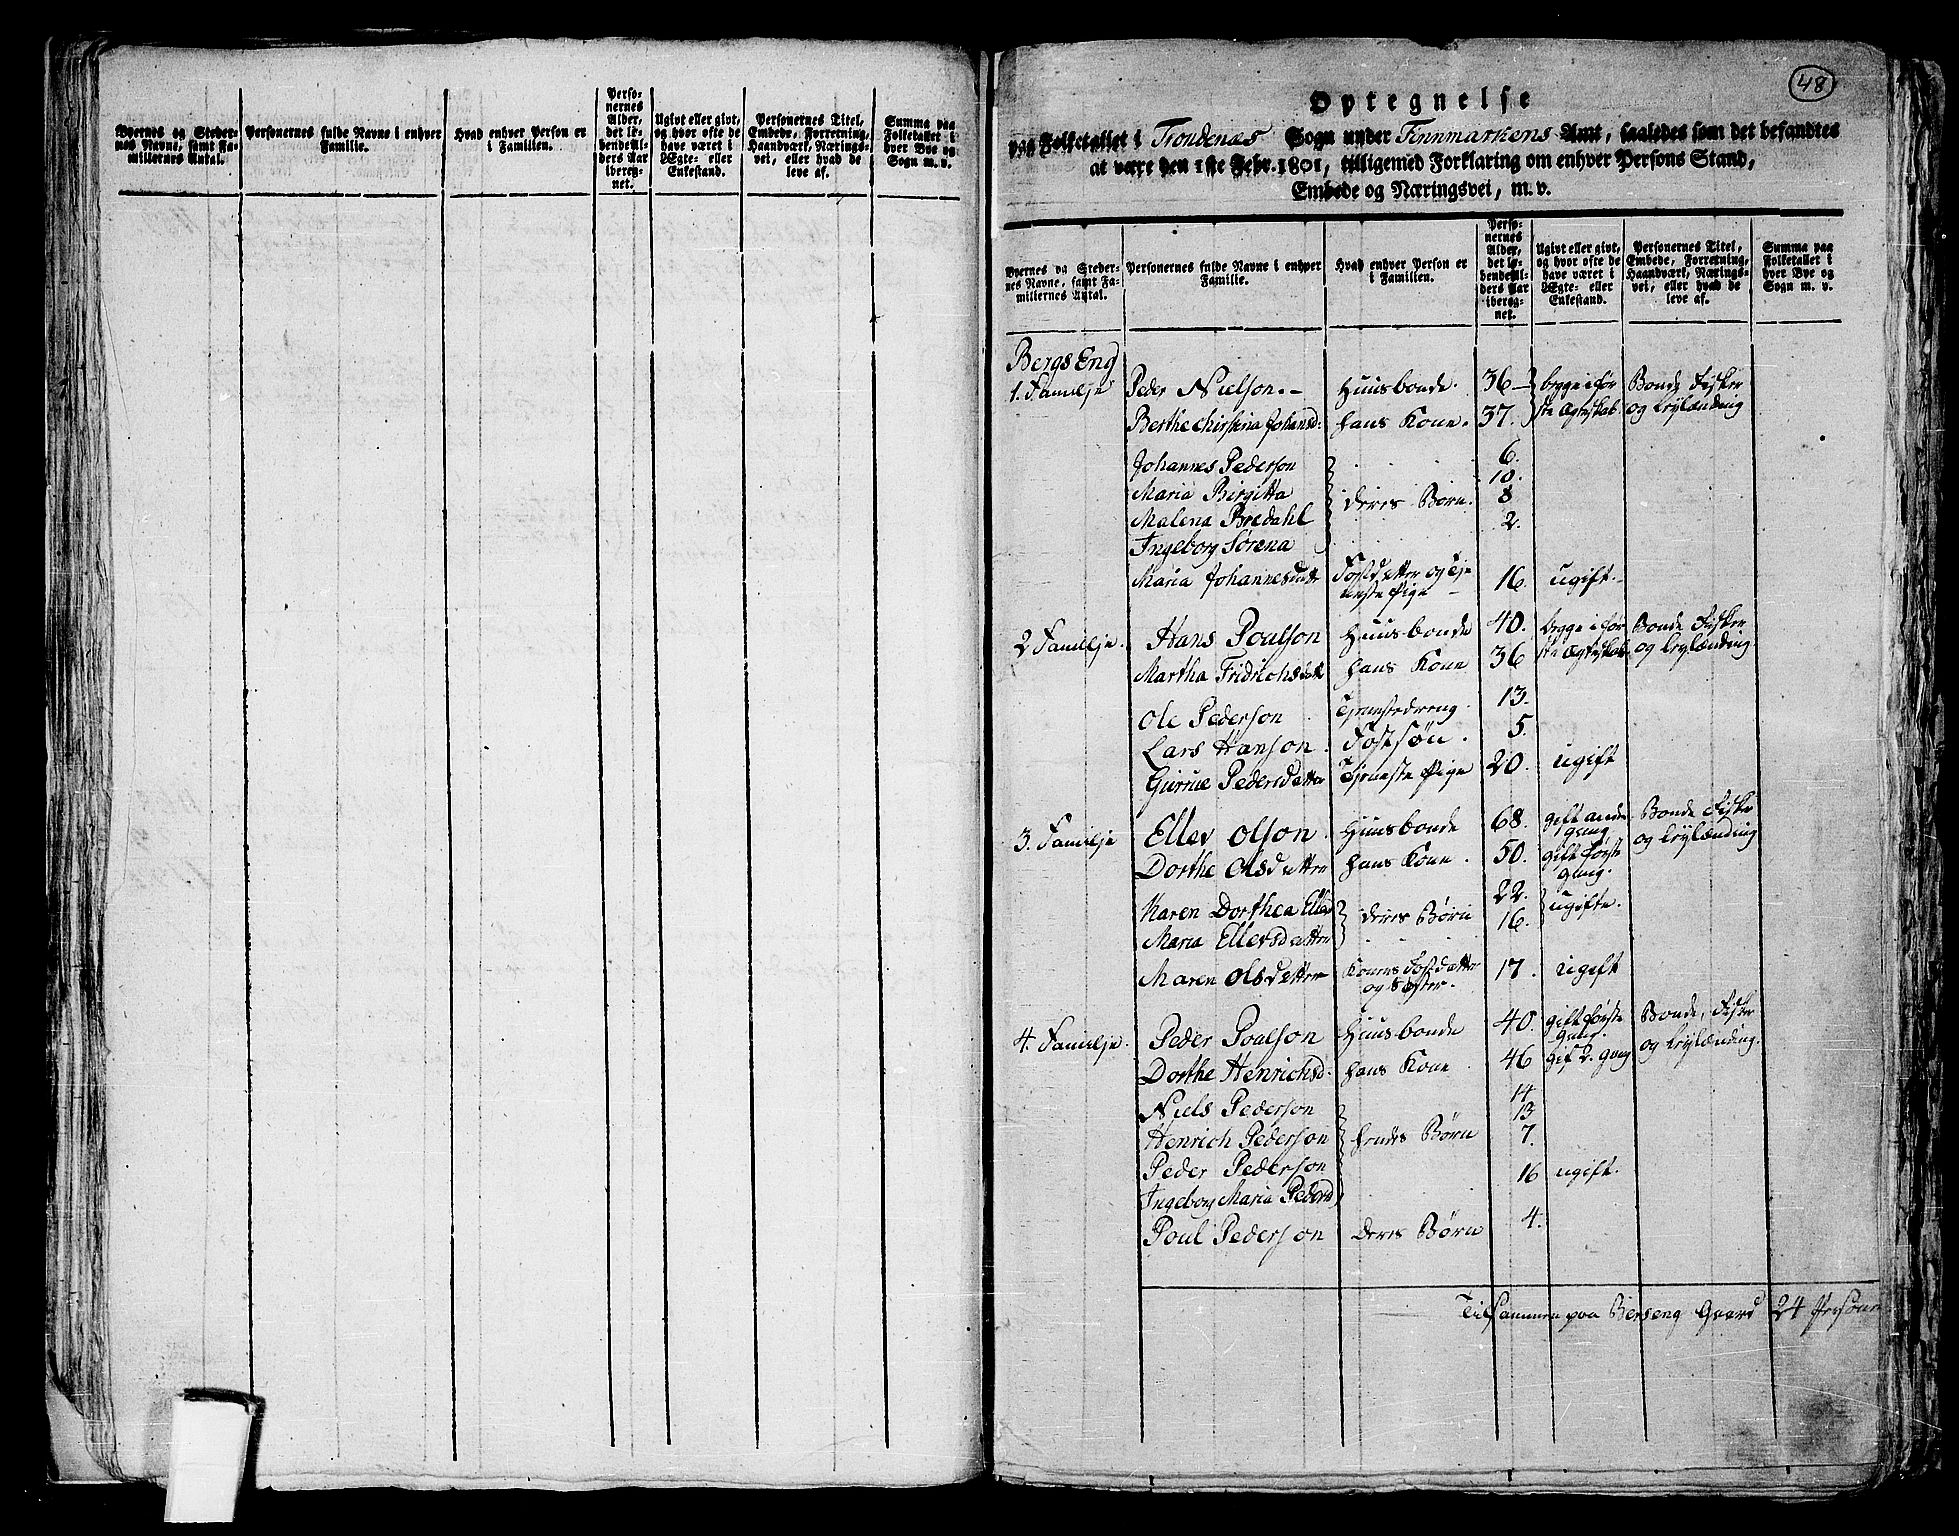 Byernes og Steder-
nes Navne, samt Fa-
millernes Antal.
Personernes fulde Navne i enhver
Familie.
Hvad enhver Person er
i Familien.
Perso-
nernes
Alder,
det lø-
bendeAl-
ders Aar
ibereg-
net.
Ugivt eller givt,
og hvor ofte de
have været i
Ægte- eller
Enkestand.
Personernes Titel,
Embede, Forretning,
Haandværk, Nærings-
vei, eller hvad de
leve af.
Summa paa
Folketallet i
hver Bye og
Sogn m. v.
48
Optegnelse
paa Folketallet i Trondenæs Sogn under Finnmarkens Amt, saaledes som det befandtes
at være den 1ste Febr. 1801, tilligemed Forklaring om enhver Persons Stand,
Embede og Næringsvei, m. v.
Byernes og Steder-
nes Navne, samt Fa-
millernes Antal.
Personernes fulde Navne i enhver
Familie.
Hvad enhver Person er
i Familien.
Perso-
nernes
Alder,
det lø-
bendeAl-
ders Aar
ibereg-
net.
Ugivt eller givt,
og hvor ofte de
have været i
Ægte- eller
Enkestand.
Personernes Titel,
Embede, Forretning,
Haandværk, Nærings-
vei, eller hvad de
leve af.
Summa paa
Folketallet i
hver Bye og
Sogn m. v.
Bergs Eng
1. Familje Peder Nielson.- Huusbonde. 36 begge i før Bonde Fisker
Berthe Chirstina Johansd: hans Kone. 37. ste Ægteskab og Leylænding
Johannes Pederson 6.
Maria Birgitta 10.
Malena Bredahl deres Børn. 8
Ingeborg Sørena 2.
Maria Johannesdatt Fostdatter og Tje 16. ugift.
neste Pige
2 Familje. Hans Poulson Huusbonde 40. begge i før Bonde Fisker
Martha Fridrichsdatt hans Kone 36 ste Ægteskab og Leylænding
Ole Pederson Tjenestedreng. 13.
Lars Hanson Fostsøn. 5.
Gurrue Pedersdatter Tjeneste Pige 20. ugift
3. Familje Ellev Olson Huusbonde 68. gift ande Bonde Fisker
gang og Leylænding
Dorthe Olsdatter hans Kone. 50. gift første
gang.
Karen Dorthea Ellev 22.
deres Børn ugifte.
Maria Ellevsdatter 16.
Maren Olsdetter Konens Fostdatter 17. ugift
og Søster.
4. Familje. Peder Poulson Huusbonde 40. gift første Bonde, Fisker
gang. og Leylænding.
Dorthe Henrichsd. hans Kone 46 gif 2. gang
Niels Pederson 14
Henrich Pederson hendes Børn 13
Peder Pederson 7.
Ingeborg Maria Pedersd 16 ugift.
Poul Pederson deres Børn 4.
Tilsammen paa Berseng Gaard 24 Persone